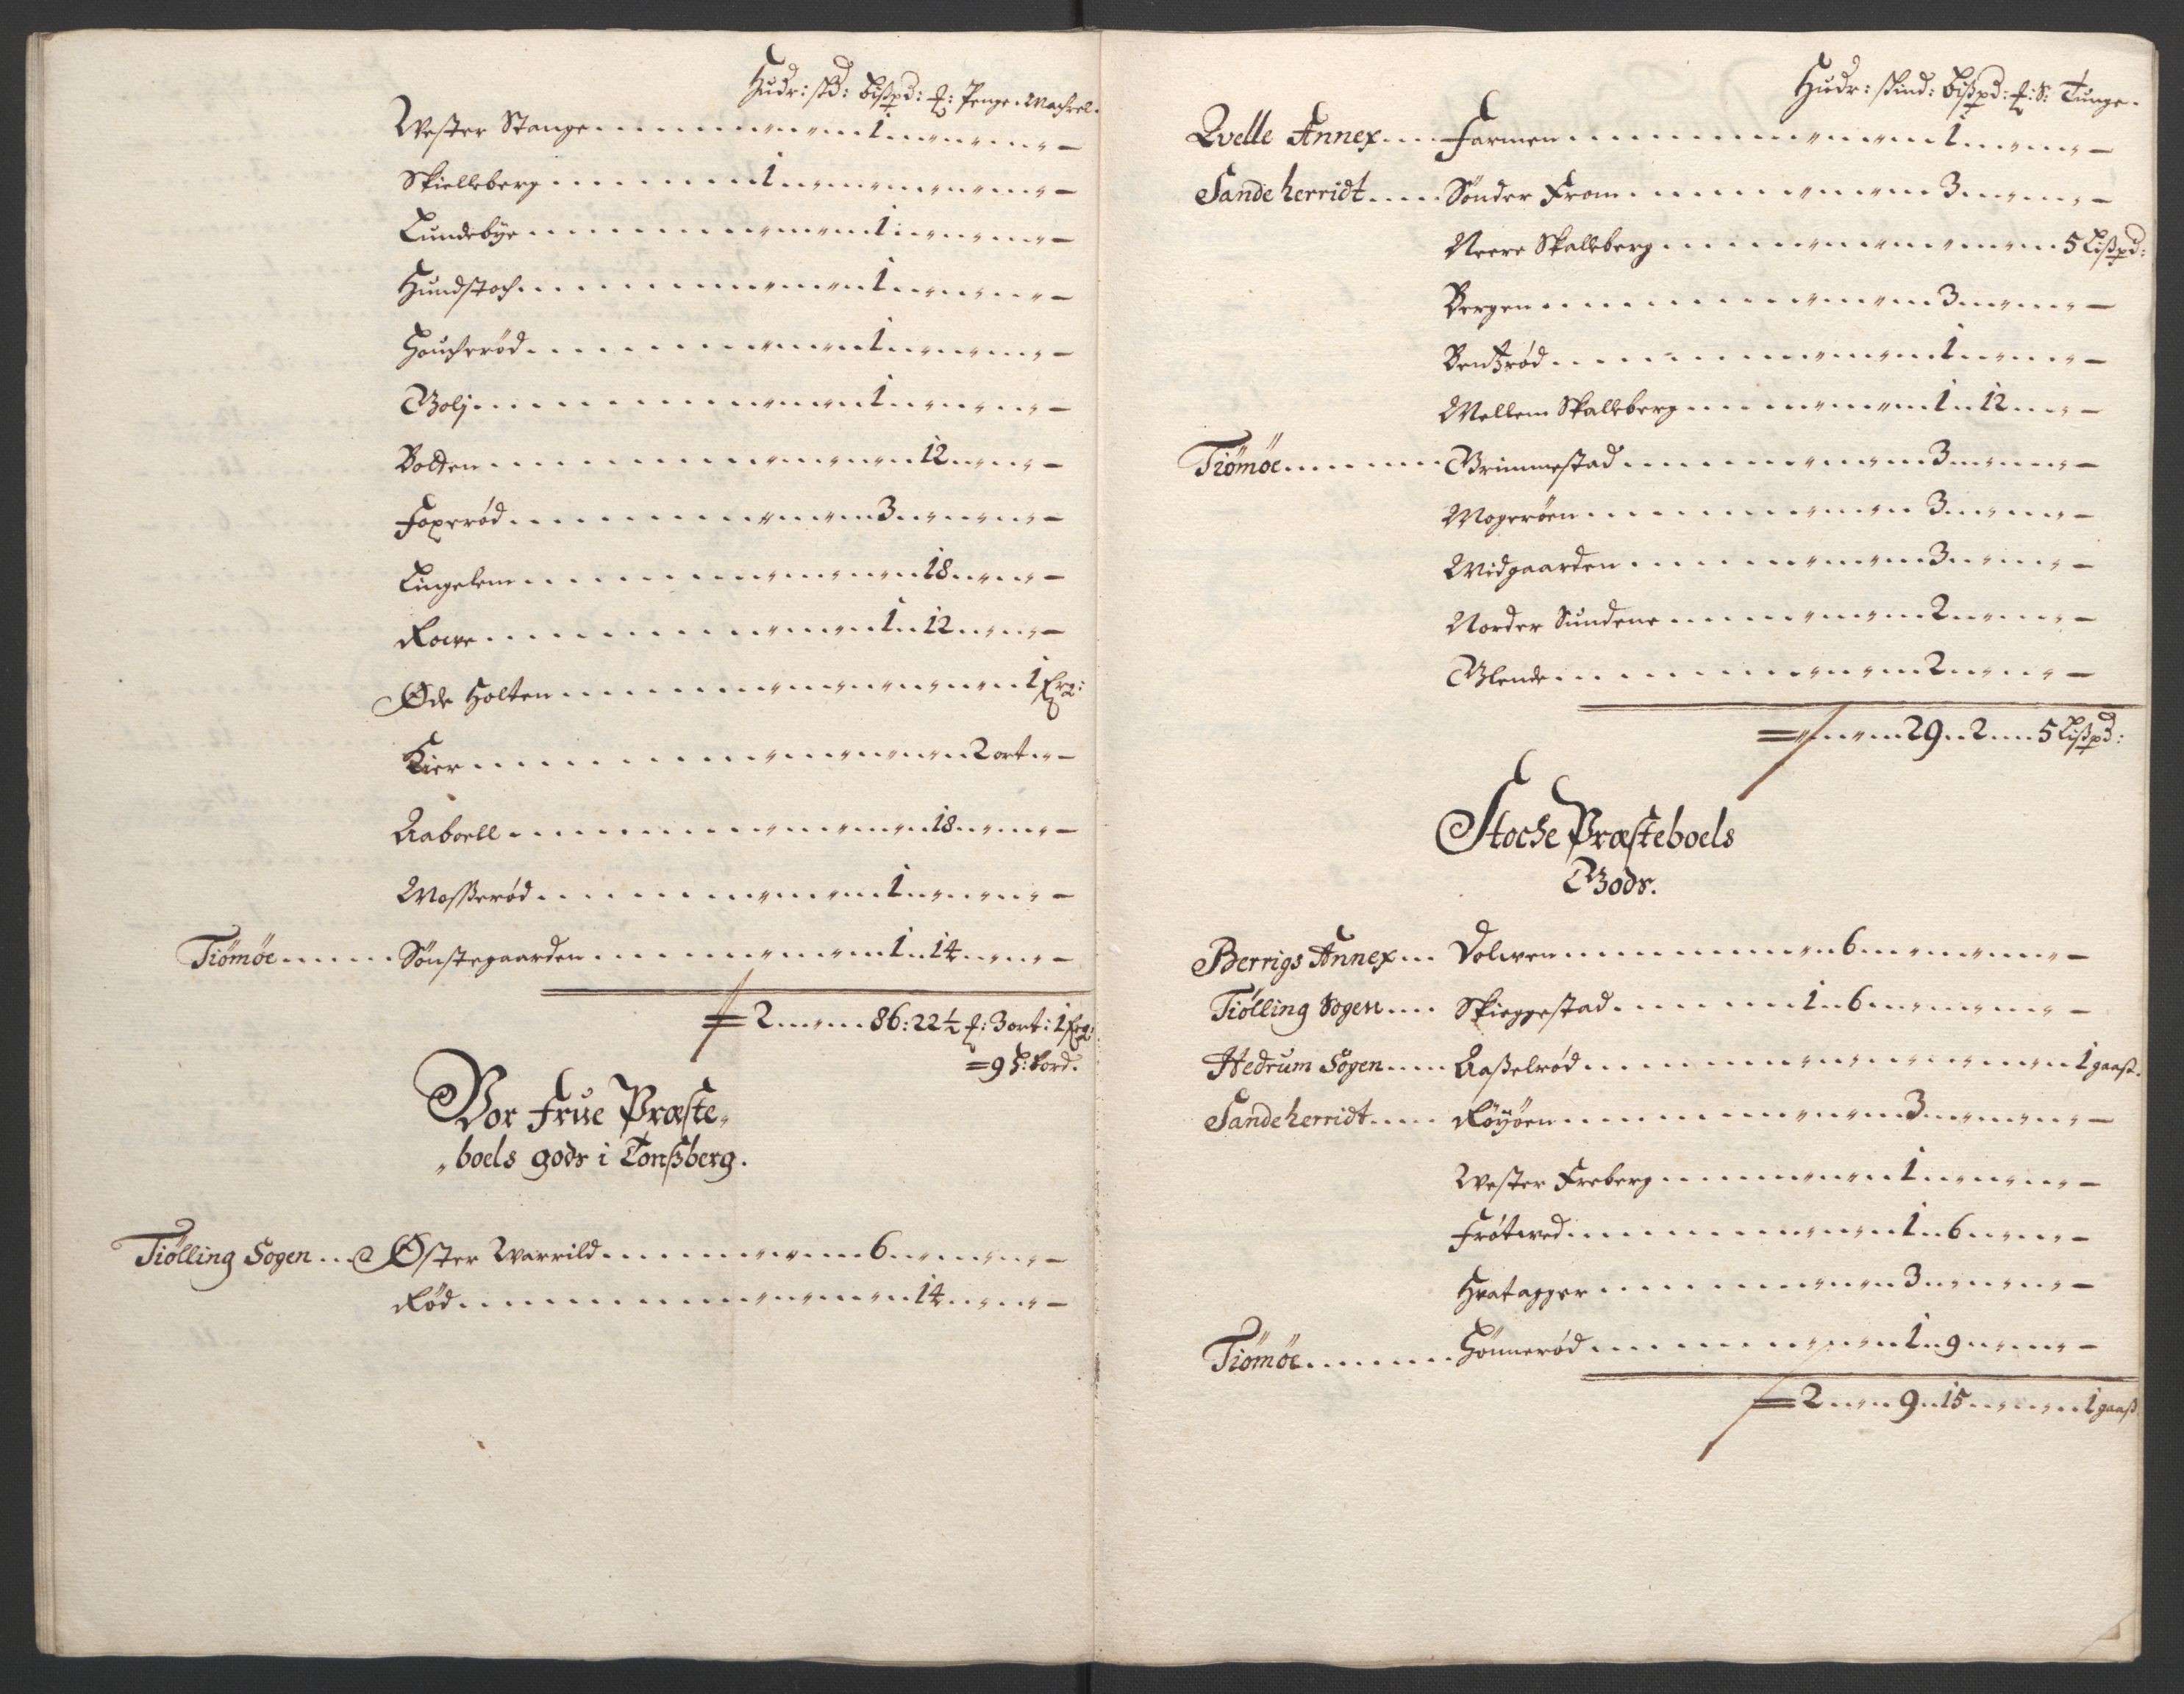 Hudr: skd: Lißpd: ℔: Penge. Machrel.
Wester Stange 1 –
Skielleberg 1 –
Lundebÿe 1 –
Hundstoch 1 –
Houfverød 1 –
Golj 1 –
Bolten 12 –
Foxerød 3 –
Lingelem 18 –
Rowe 1 12 –
Øde Holten 1
Kier 2 ort –
Aaboell 18 –
Moßerød 1 –
Tiömöe Sönstegaarden 1 14 –
2 86: 22½ ℔: 3 ort: 1
= 9
Vor Frue Præste„
„boels gods i Tonßberg.
Tiølling Sogen Øster Warrild 6 –
Rød 14 –
Hudr: skind: Lißpd: ℔: S: Tunge.
Qvelle Annex Farmen 1 –
Sandeherridt Sönder From 3 –
Neere Skalleberg 5 Lißpd:
Bergen 3 –
Bentzrød 1 –
Mellem Skalleberg 1 12 –
Tiömöe Grimmestad 3 –
Mogerøen 3 –
Midgaarden 3 –
Norder Sundene 2 –
Glende 2 –
29 2 5 Lißpd:
Stoche Præsteboels
Gods.
Berrigs Annex Dolwen 6 –
Tiølling Sogen Skieggestad 1 6 –
Hedrum Sogen Aaßelrød 1 gaaß.
Sandeherridt Röyöen 3 –
Wester Freberg 1 –
Frøtwed 1 6 –
Hvatagger 3 –
Tiömöe Hönnerød 1 9 –
2 9 15 1 gaaß.